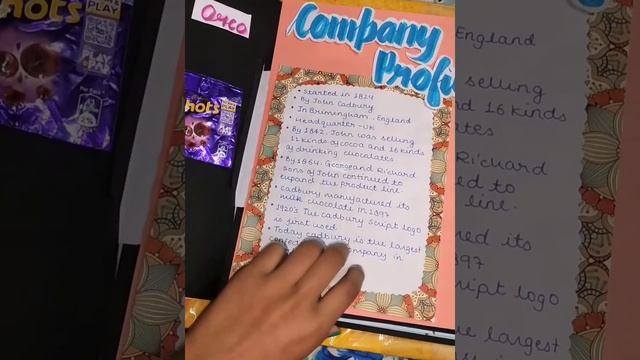 Oreo
Company
Profi
hots
PLAY
hots
• Started in 1824
• By John Cadbury
• In Brimingham, England
• Headquarter - UK
• By 1842. John was selling
11 kinds of cocoa and 16 kinds
of drinking chocolates
• By 1864. George and Richard
sons of John continued to
expand the product line.
• Cadbury manufactured its
milk chocolate in 1897
• 1920's The cadbury script logo
is first used
• Today cadbury is the largest
company in
England
selling
and 16 kinds
ates
Richard
ued to
line.
ed its
897
ript logo
the largest